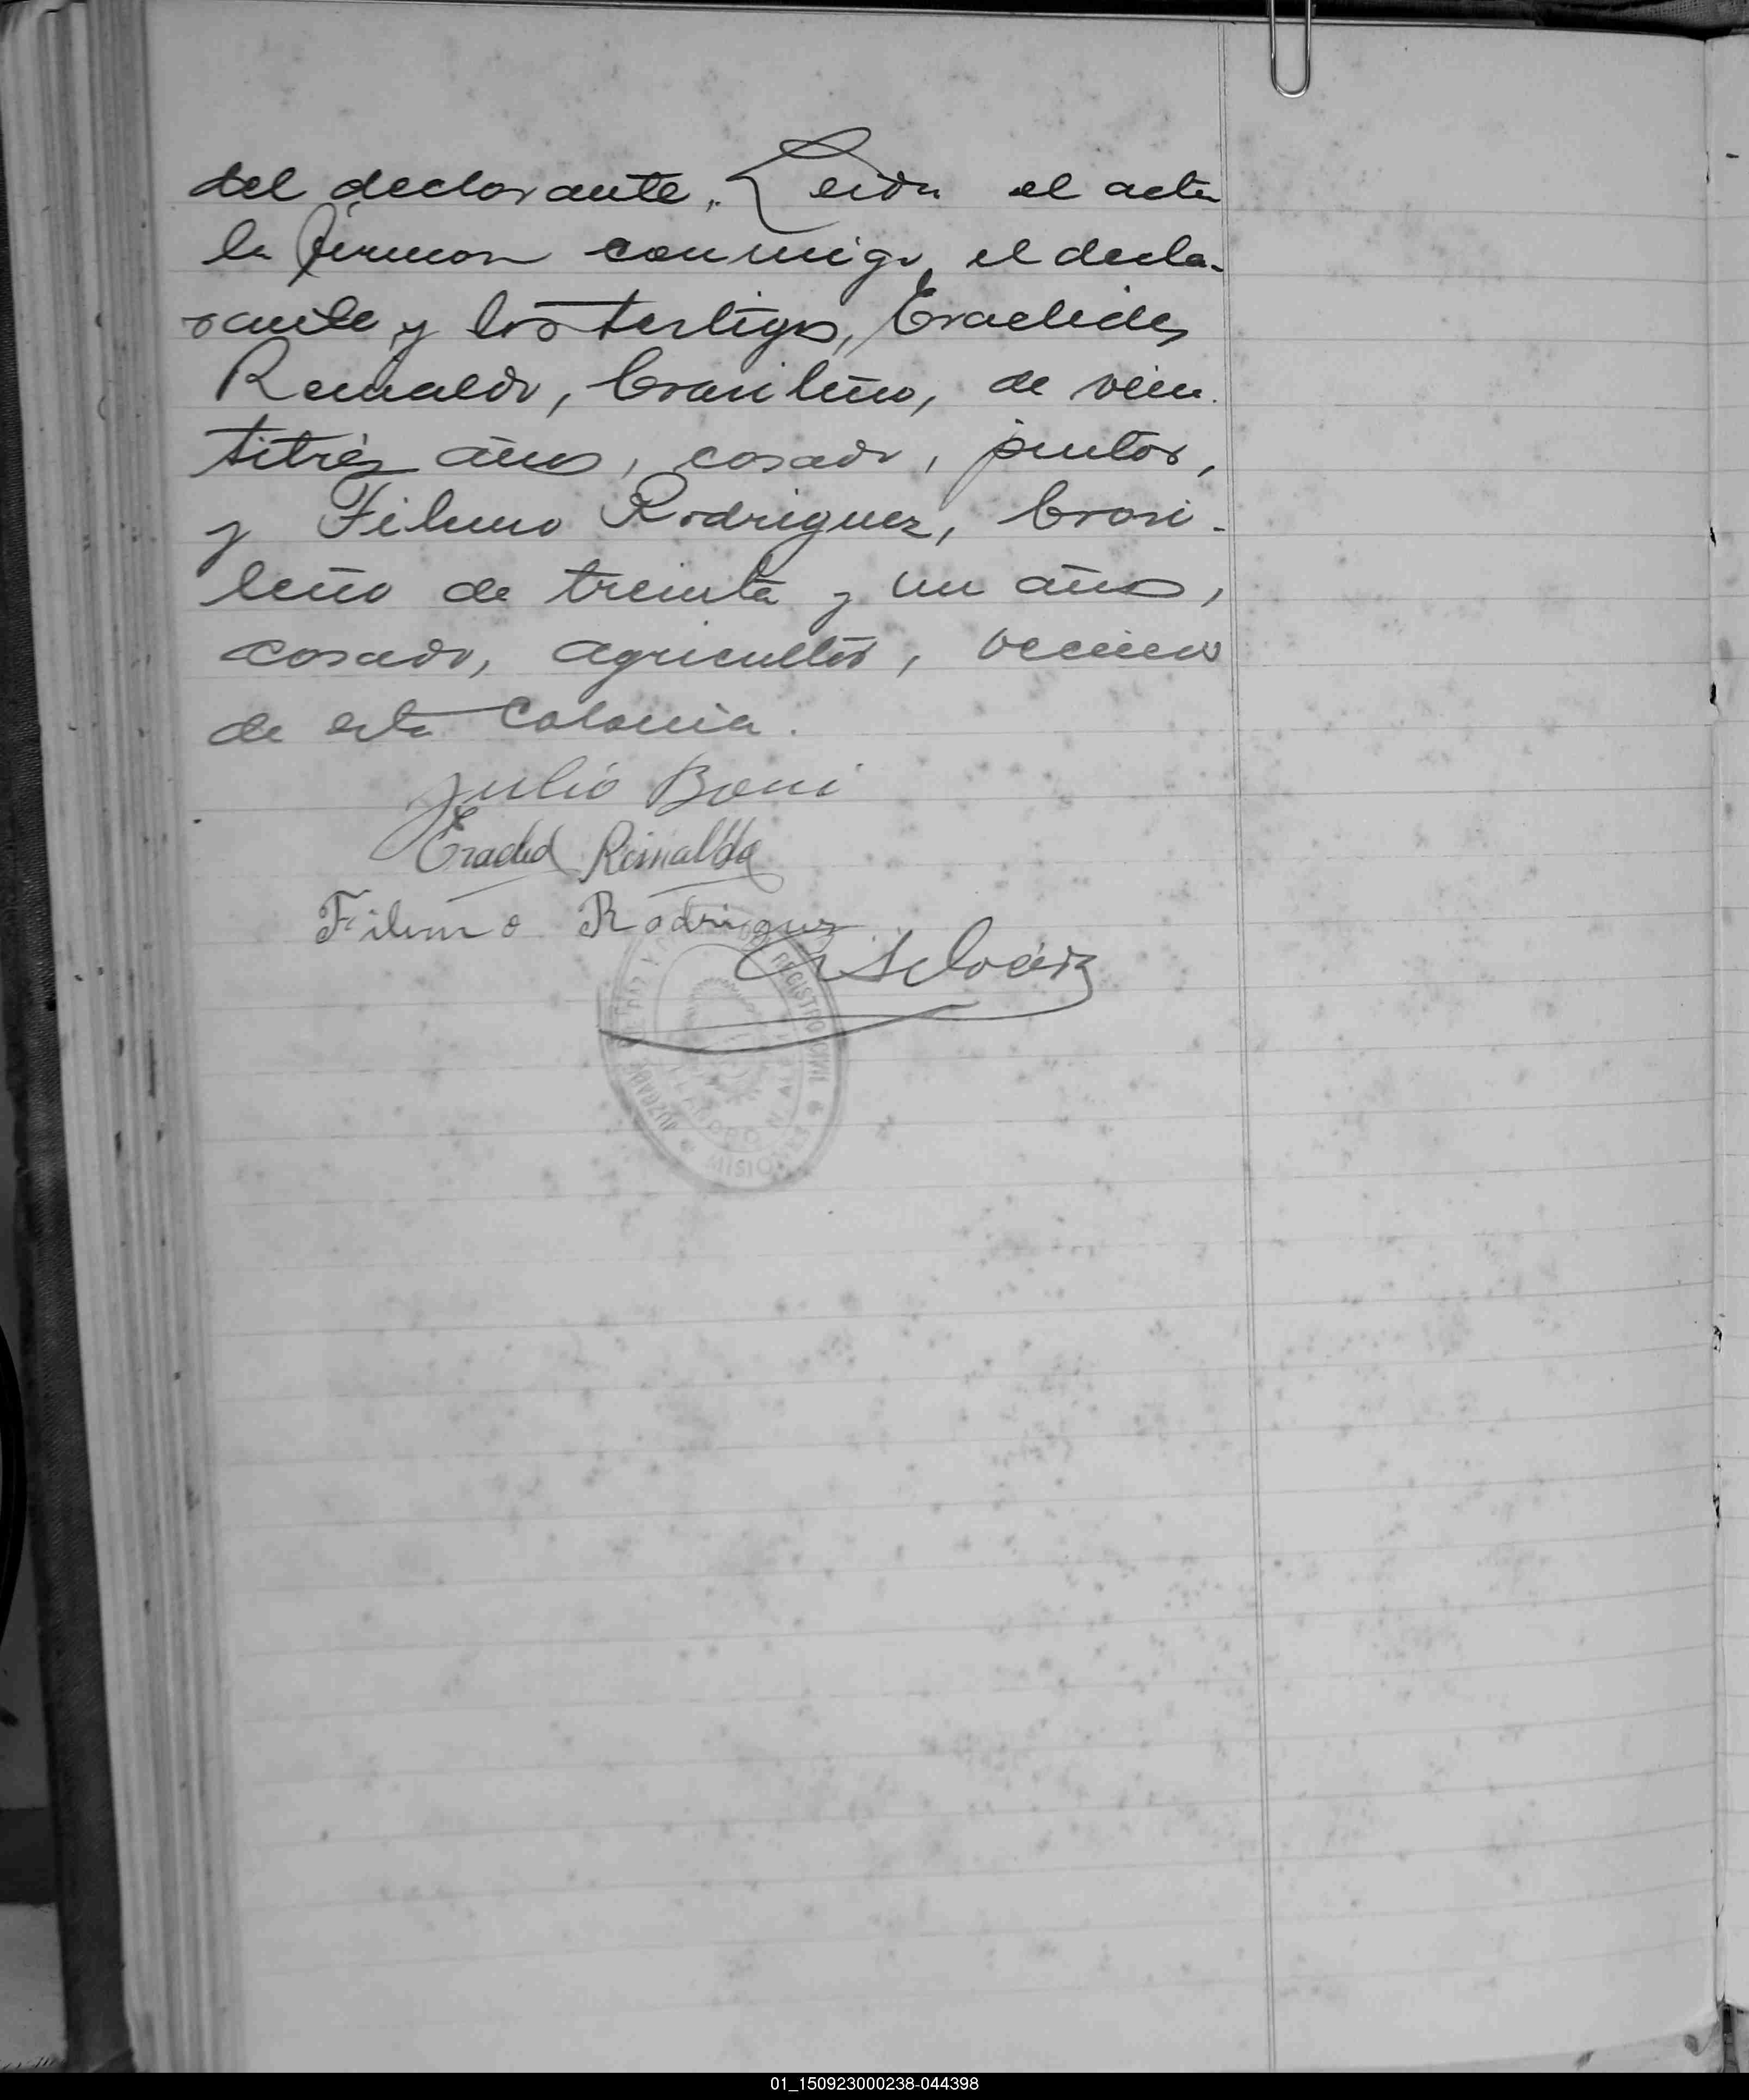 del declarante. Leida el acta
la firman conmigo, el decla-
rante y los testigos, Eraclides
Reinaldo, brasileño, de vein-
titrés años, casado, pintor,
y Filenno Rodriguez, brasi-
leño de treinta y un años,
casado, agricultor, vecinos
de esta Colonia.
Julio Boni
Eraclid Reinaldo
Rodriguez
JUZGADO DE PAZ Y REGISTRO CIVIL
LEANDRO N. ALEM
MISIONES
01_150923000238-044398